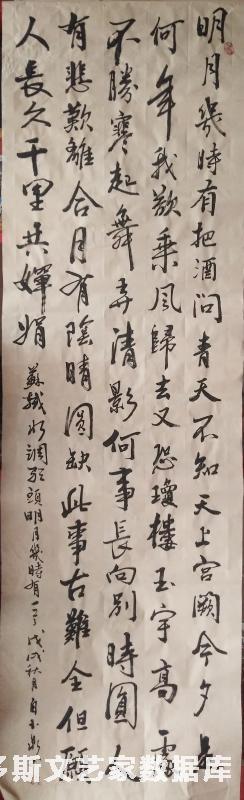 明月幾時有把酒問青天不知天上宮闕今夕是
何年我欲乘風歸去又恐瓊樓玉宇高處
不勝寒起舞弄清影何事長向別時圓人
有悲歡離合月有陰晴圓缺此事古難全但願
人長久千里共嬋娟
蘇軾水調歌頭明月幾時有戊戌秋月
多斯文艺家数据库